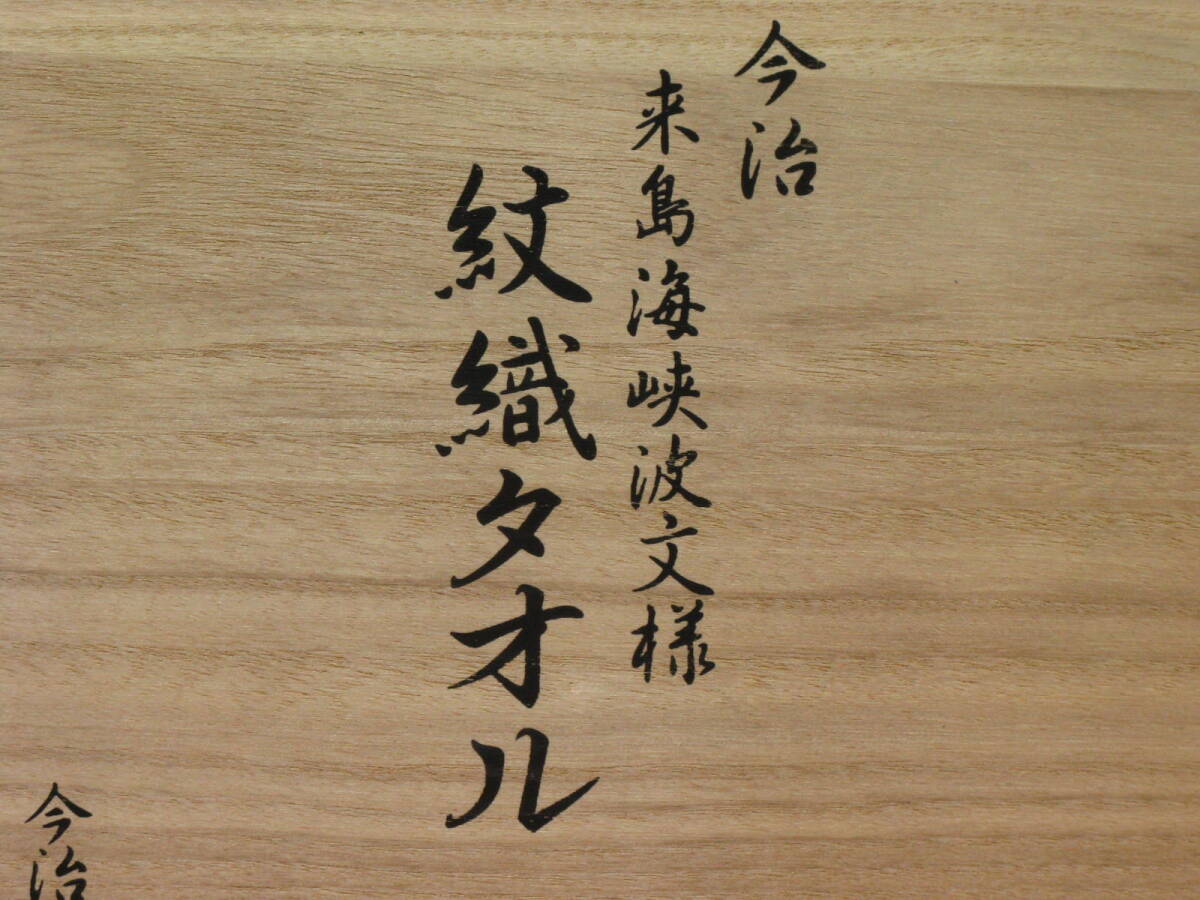 今治
来島海峡波文様
紋織タオル
今治